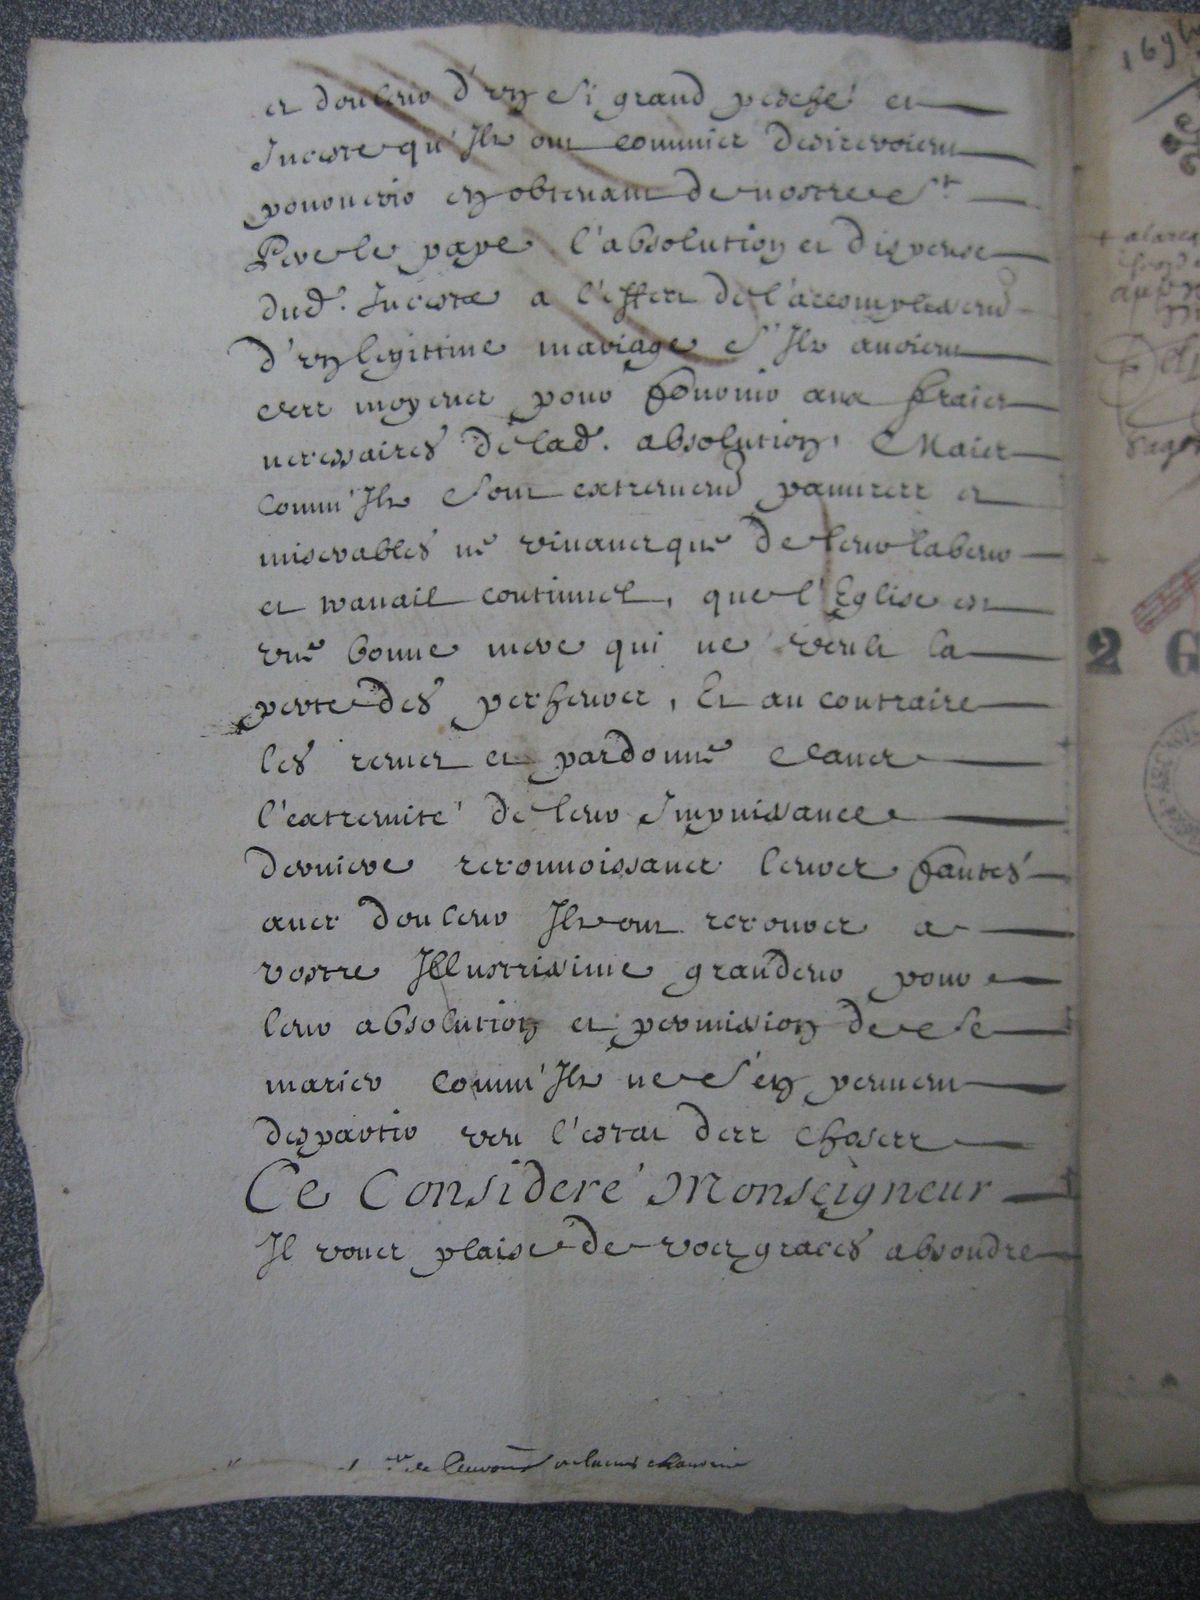 et douleur d'vn si grand peché et
Inceste qu'Ilz ont commict desireroient
pouuoir en obtenant de nostre St
Pere le pape l'absolution et dispense
dud. Inceste a l'effect de l'accomplissemt
d'vn legittime mariage s'Ilz auoient
les moyens pour fournir aux fraicts
necessaires de lad. absolution, Mais
Comm'Ilz sont extrememt pauures et
miserables ne viuans que de leur labeur
et trauail continuel, que l'Eglise est
vne bonne mere qui ne veult la
perte des pecheurs, Et au contraire
les remet et pardonne
l'extremité de leur Impuissance
derniere recounoissans leurs fautes
auec douleur Ilz ont recours a
vostre Illustrissime grandeur pour
leur absolution et permission de se
marier Comm'Ilz ne s'en peuuent
despartir veu l'estat des choses
Ce Consideré Monseigneur
Il vous plaise de voz graces absoudre
169
2 G